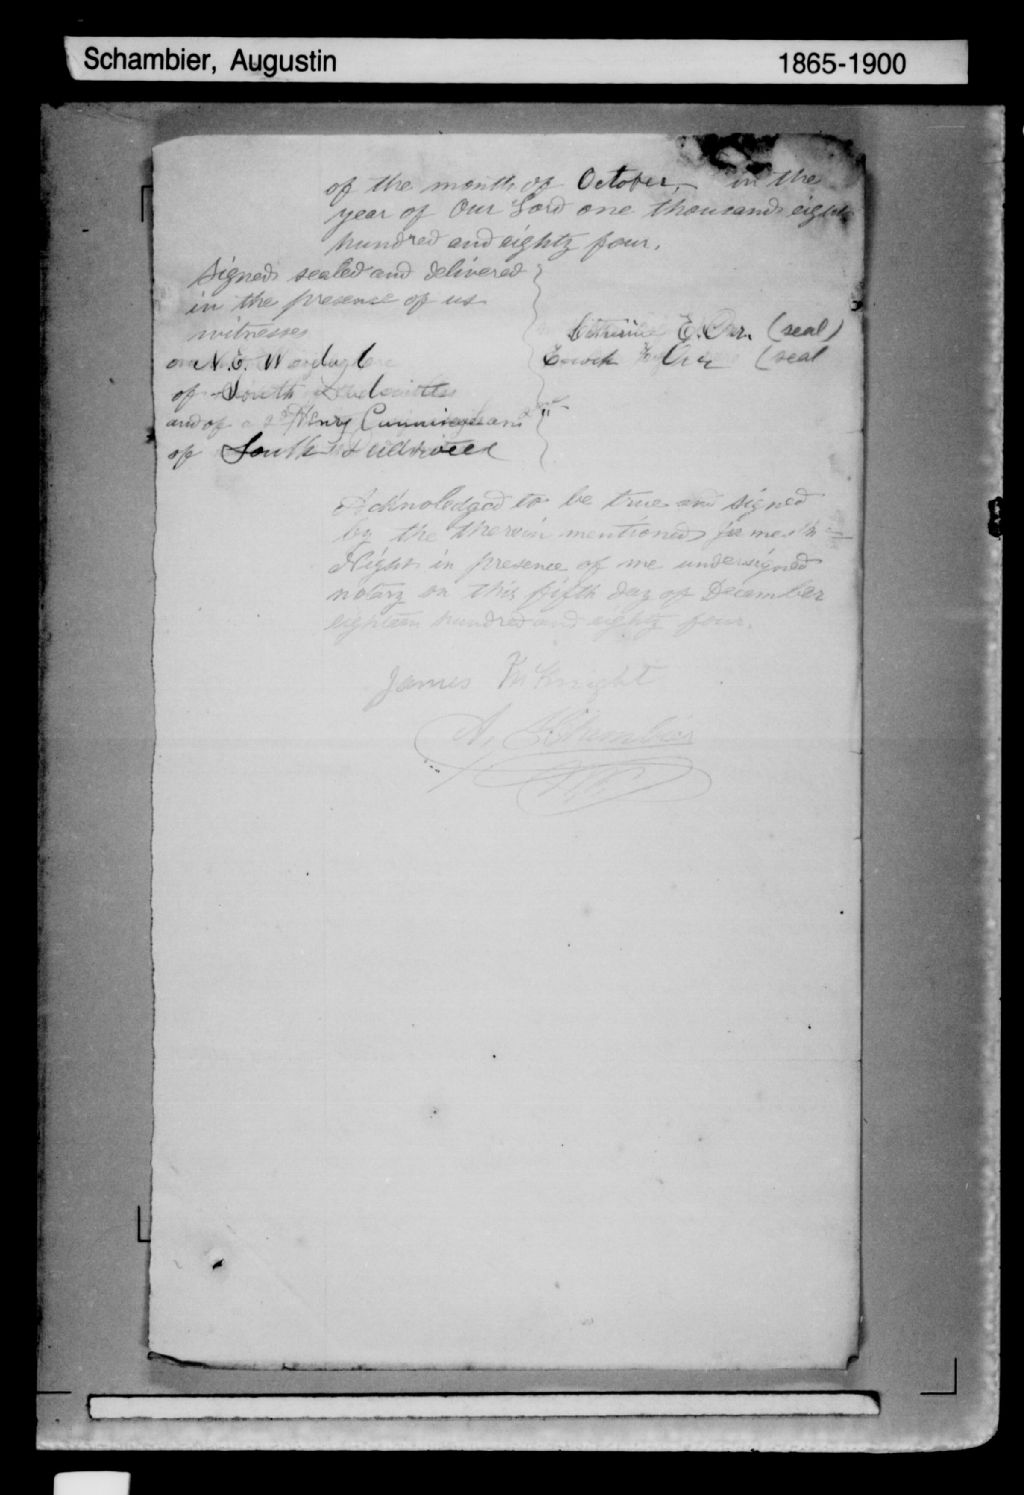 Schambier, Augustin
1865-1900
of the month of October, in the
year of Our Lord one thousand eight
hundred and eighty four.
Signed sealed and delivered
in the presence of us
witnesses
N. E.
of South
and of Henry Cunningham
of South
Catherine E. Orr. (seal)
Enoch Orr (seal
Acknoledged to be true and signed
by the therein mentioned James
Night in presence of me undersigned
notary on this fifth day of December
eighteen hundred and eighty four.
James McKnight
A. Schambier